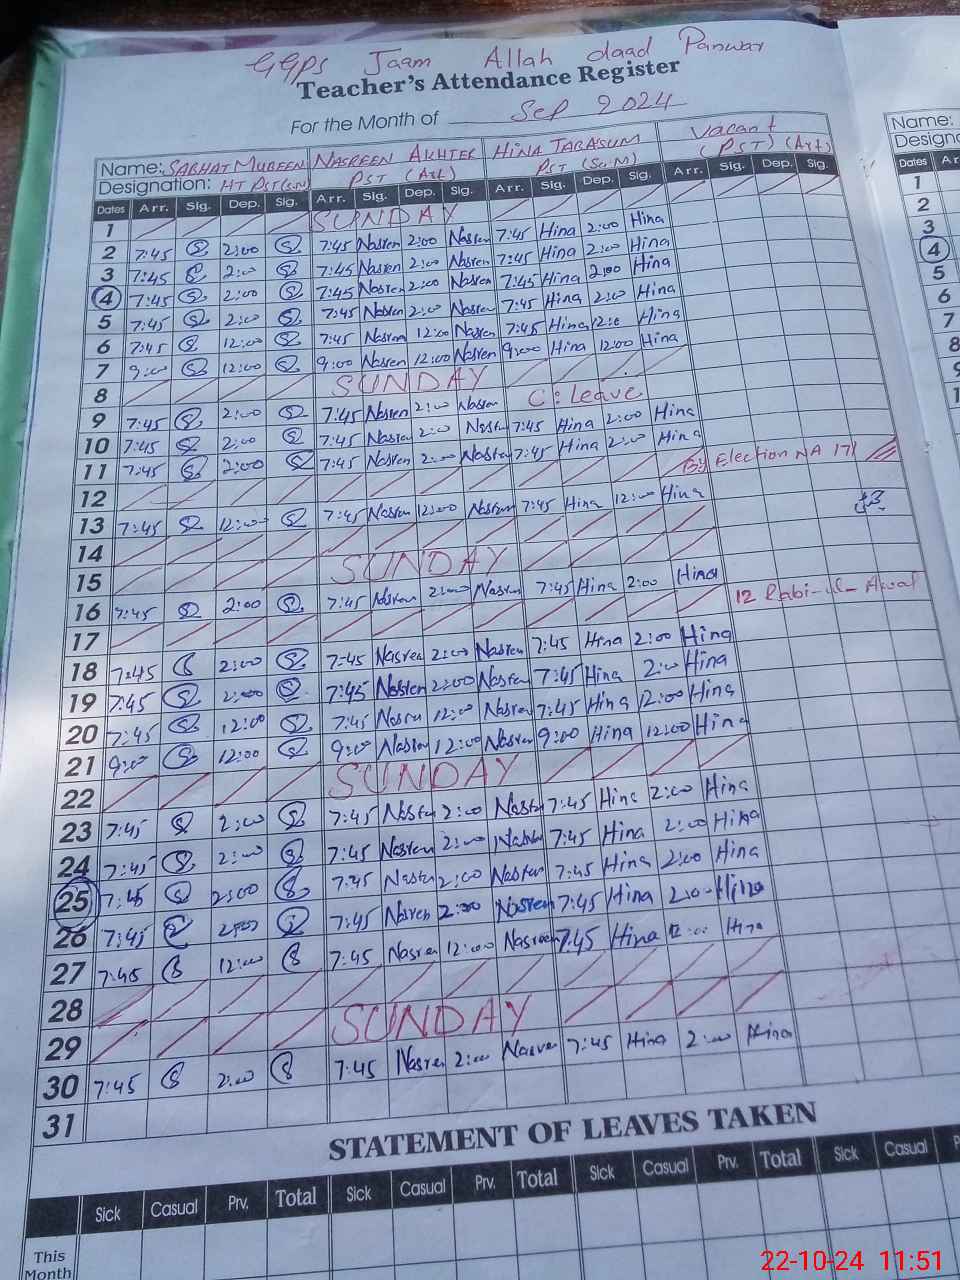 GGPS Jaam Allah daad Panwar
Teacher's Attendance Register
For the Month of Sep 2024
Name: SABHAT MUBEEN NASREEN AKHTER HINA TABASUM Vacant
Designation: HT PST(S.N) PST (Art) PST (Sc.M) (PST) (Art)
Dates Arr. Sig. Dep. Sig. Arr. Sig. Dep. Sig. Arr. Sig. Dep. Sig. Arr. Sig. Dep. Sig.
1 SUNDAY
2 7:45 S 2:00 S 7:45 Nasren 2:00 Nasren 7:45 Hina 2:00 Hina
3 7:45 2:00 S 7:45 Nasren 2:00 Nasren 7:45 Hina 2:00 Hina
4 7:45 S 2:00 S 7:45 Nasren 2:00 Nasren 7:45 Hina 2:00 Hina
5 7:45 S 2:00 S 7:45 Nasren 2:00 Nasren 7:45 Hina 2:00 Hina
6 7:45 S 12:00 S 7:45 Nasren 12:00 Nasren 7:45 Hina 12:0 Hina
7 9:00 S 12:00 S 9:00 Nasren 12:00 Nasren 9:00 Hina 12:00 Hina
8 SUNDAY
9 7:45 S 2:00 S 7:45 Nasren 2:00 Nasren C: Leave
10 7:45 S 2:00 S 7:45 Nasren 2:00 Nasren 7:45 Hina 2:00 Hina
11 7:45 S 2:00 S 7:45 Nasren 2:00 Nasren 7:45 Hina 2:00 Hina
12 By Election NA 171
13 7:45 S 12:00 S 7:45 Nasren 12:00 Nasren 7:45 Hina 12:00 Hina
14
15 SUNDAY
16 7:45 S 2:00 S 7:45 Nasren 2:00 Nasren 7:45 Hina 2:00 Hina
17 12 Rabi-ul-Awal
18 7:45 S 2:00 S 7:45 Nasren 2:00 Nasren 7:45 Hina 2:00 Hina
19 7:45 S 2:00 S 7:45 Nasren 2:00 Nasren 7:45 Hina 2:00 Hina
20 7:45 S 12:00 S 7:45 Nasren 12:00 Nasren 7:45 Hina 12:00 Hina
21 9:00 S 12:00 S 9:00 Nasren 12:00 Nasren 9:00 Hina 12:00 Hina
22 SUNDAY
23 7:45 S 2:00 S 7:45 Nasren 2:00 Nasren 7:45 Hina 2:00 Hina
24 7:45 S 2:00 S 7:45 Nasren 2:00 Nasren 7:45 Hina 2:00 Hina
25 7:45 S 2:00 S 7:45 Nasren 2:00 Nasren 7:45 Hina 2:00 Hina
26 7:45 2:00 S 7:45 Nasren 2:00 Nasren 7:45 Hina 2:00 Hina
27 7:45 S 12:00 S 7:45 Nasren 12:00 Nasreen 7:45 Hina 12:00 Hina
28
29 SUNDAY
30 7:45 S 2:00 S 7:45 Nasren 2:00 Nasren 7:45 Hina 2:00 Hina
31
STATEMENT OF LEAVES TAKEN
Sick Casual Prv. Total Sick Casual Prv. Total Sick Casual Prv. Total Sick Casual P
This
Month
Name:
Designa
Dates Ar
1
2
3
4
5
6
7
8
22-10-24 11:51